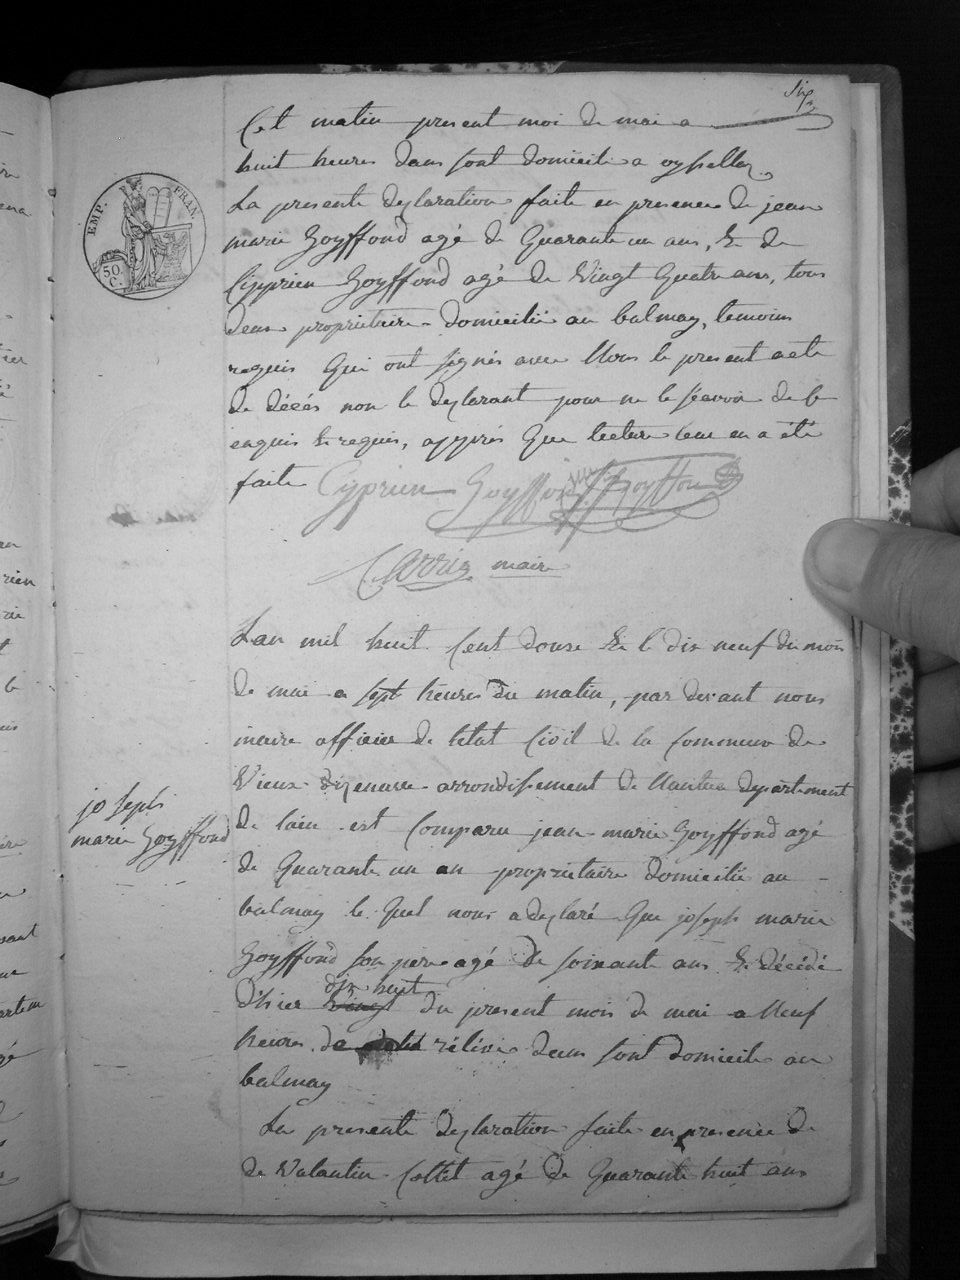 Six
Cet matin present moi de mai a
huit heures dans sont domicile a oyssellaz
La presente declaration faite en presence de jean
marie Goyffond agé de Quarante un ans, & de
Cyprien Goyffond agé de Vingt Quatre ans, tous
deux propriétaire domicilié au balmay, temoins
requis Qui ont signés avec Nous le present acte
de décés non le declarant pour ne le sçavoir de ce
enquis & requis, apprés Que lecture leur en a été
faite Cyprien Goyffon Goyffon
Carrier maire
EMP. FRAN.
50 C.
Lan mil huit Cent douse & le dix neuf du mois
de mai a sept heures du matin, par devant nous
maire officier de letat Civil de la Commune de
Vieux dizenave arrondissement de Nantua departement
de lain est Comparu jean marie Goyffond agé
de Quarante un an propriétaire domicilié au
balmay le Quel nous a declaré Que joseph marie
Goyffond son pere agé de soixante ans & décédé
dix huit
d'hier vingt du present mois de mai a Neuf
heures de rélévé dans sont domicile au
balmay
joseph
marie Goyffond
La presente declaration faite en presence de
de Valantin Cottet agé de Quarante huit ans